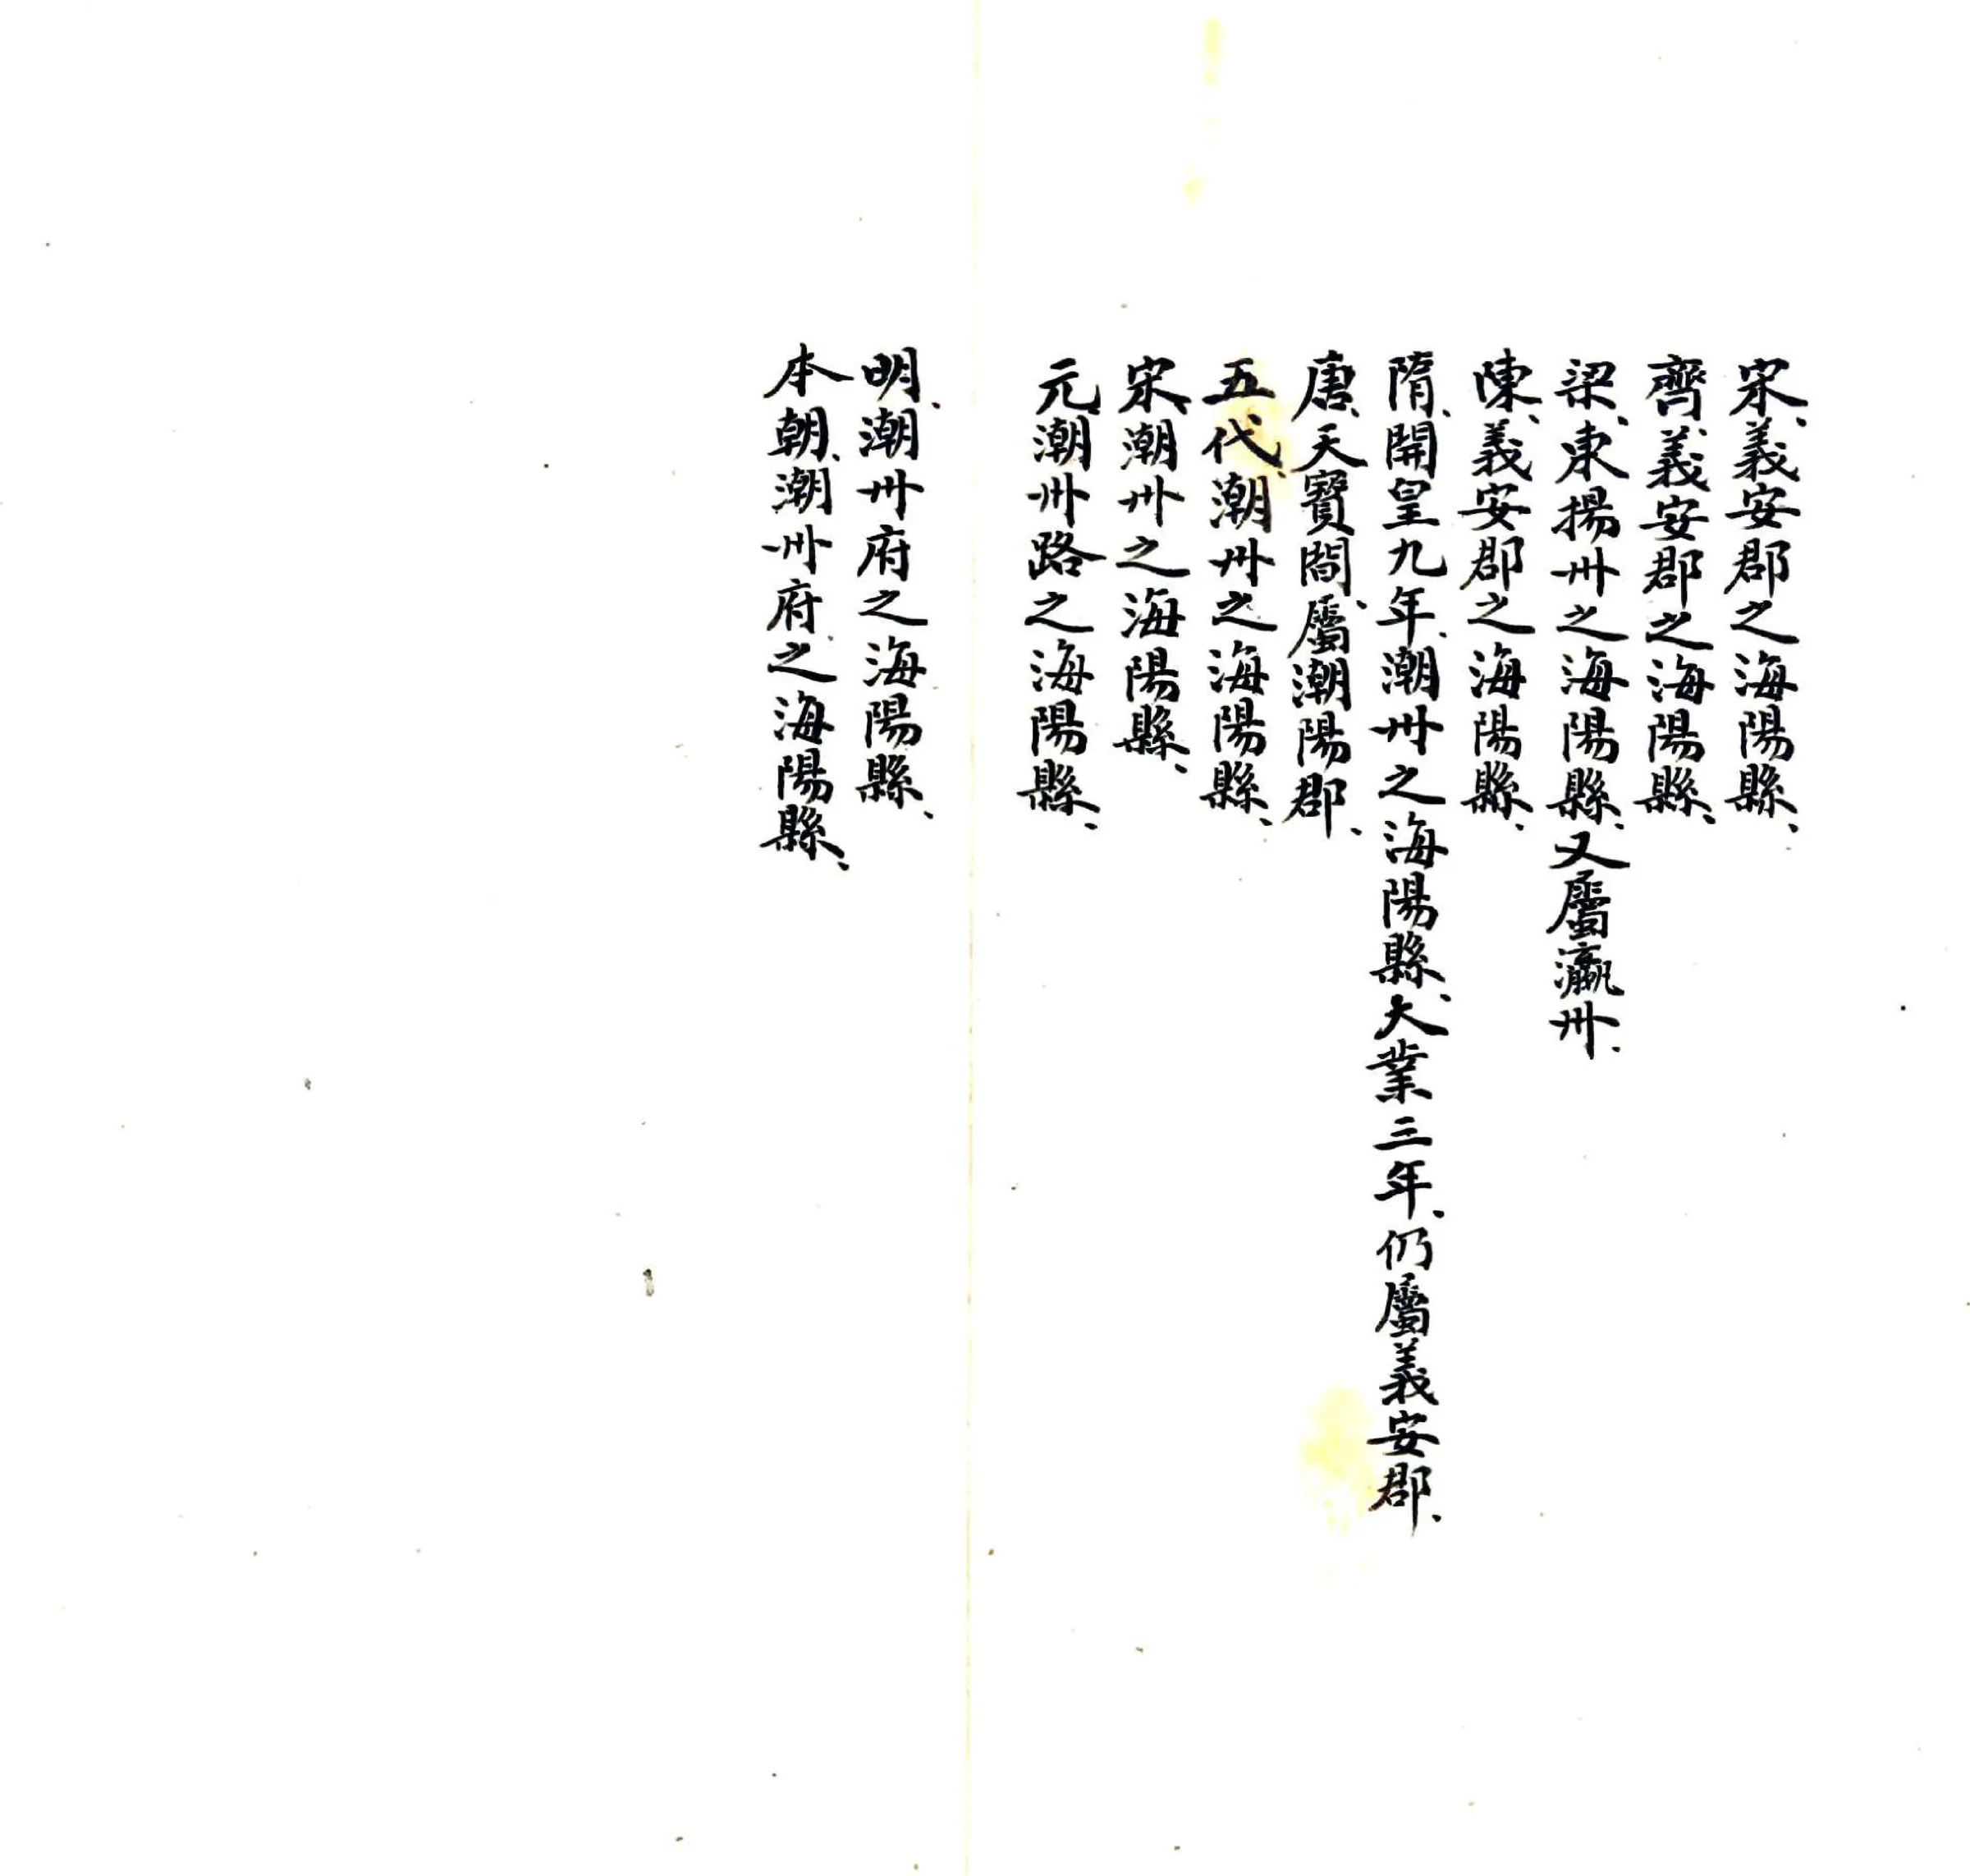 宋、義安郡之海陽縣、
齊、義安郡之海陽縣、
梁、東揚州之海陽縣、又屬瀛州、
陳、義安郡之海陽縣、
隋、開皇九年、潮州之海陽縣、大業三年、仍屬義安郡、
唐、天寶間、屬潮陽郡、
五代、潮州之海陽縣、
宋、潮州之海陽縣、
元、潮州路之海陽縣、
明、潮州府之海陽縣、
本朝、潮州府之海陽縣、